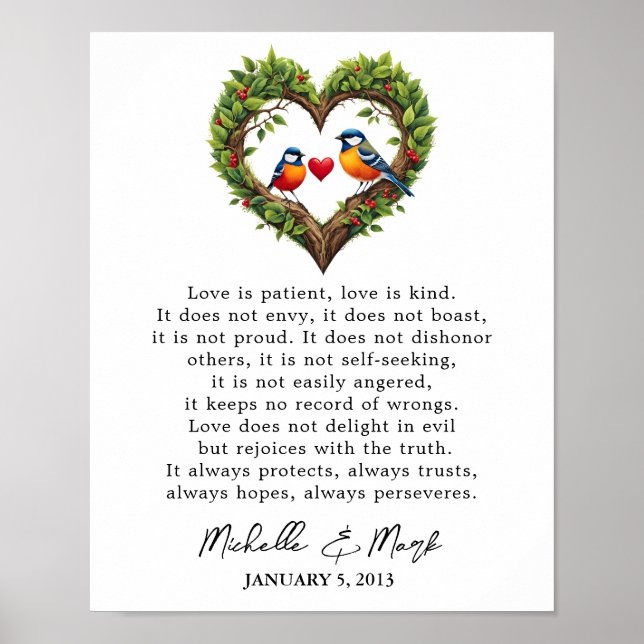 Love is patient, love is kind.
It does not envy, it does not boast,
it is not proud. It does not dishonor
others, it is not self-seeking,
it is not easily angered,
it keeps no record of wrongs.
Love does not delight in evil
but rejoices with the truth.
It always protects, always trusts,
always hopes, always perseveres.
Michelle & Mark
JANUARY 5, 2013